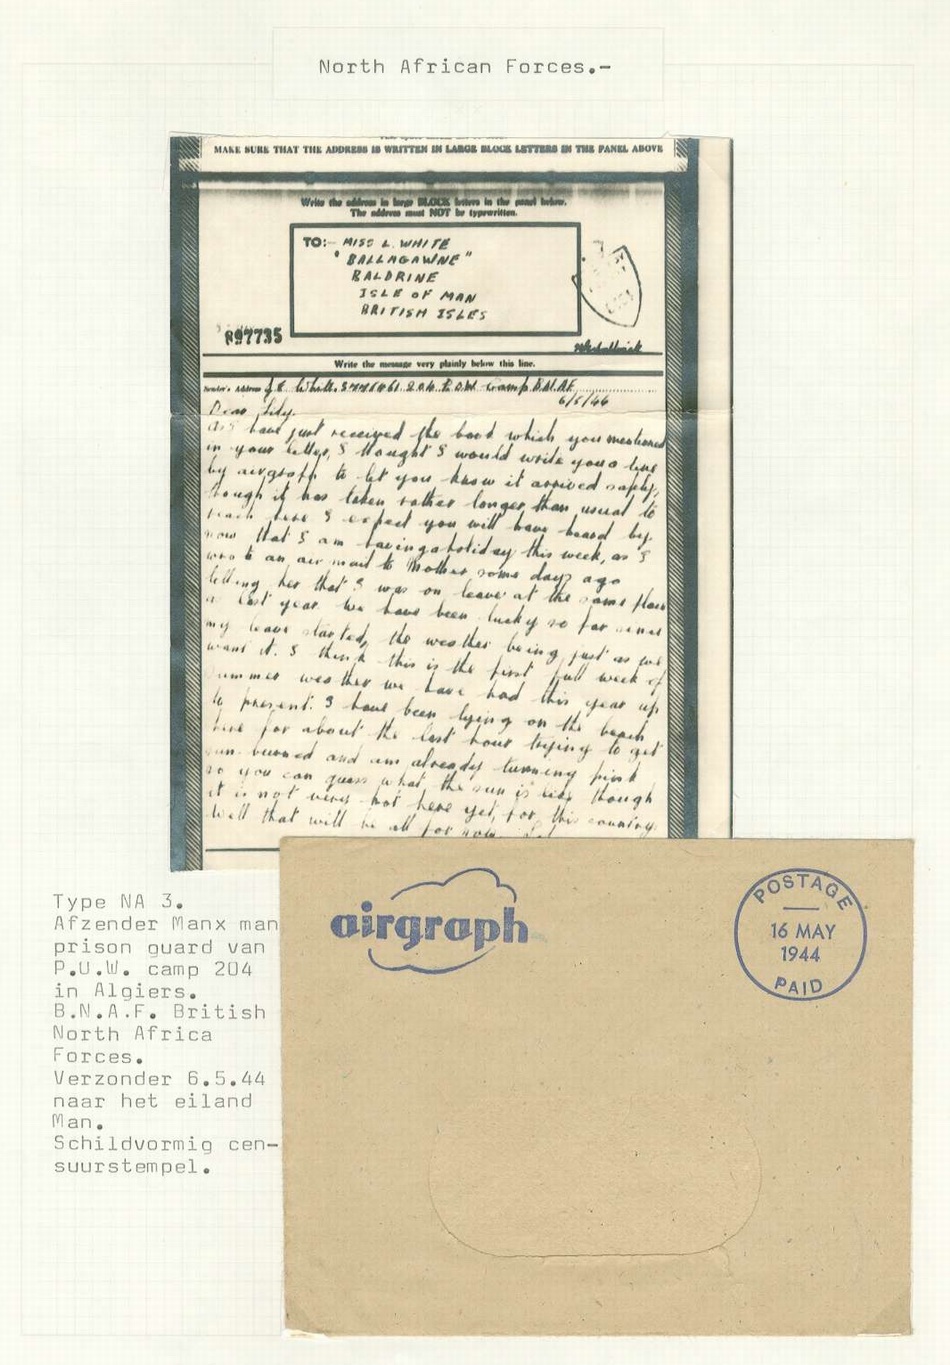 North African Forces.-
MAKE SURE THAT THE ADDRESS IS WRITTEN IN LARGE BLOCK LETTERS IN THE PANEL ABOVE
Write the address in large BLOCK letters in the panel below.
The address must NOT be typewritten.
TO:- MISS L. WHITE
"BALLAGAWNE"
BALDRINE
ISLE OF MAN
BRITISH ISLES
897735
Write the message very plainly below this line.
Sender's Address White 204 P.O.W. Camp B.N.A.F.
6/5/44
Dear Lily,
As I have just received the book which you mentioned
in your letter, I thought I would write you a line
by airgraph to let you know it arrived safely,
though it has taken rather longer than usual to
reach here I expect you will have heard by
now that I am having a holiday this week, as I
wrote an air mail to Mother some days ago
telling her that I was on leave at the same place
as last year. We have been lucky so far since
my leave started, the weather being just as we
want it. I think this is the first full week of
summer weather we have had this year up
to present. I have been lying on the beach
here for about the last hour trying to get
sun burned and am already turning pink
so you can guess what the sun is like though
it is not very hot here yet, for this country.
Well that will be all for now
airgraph
POSTAGE
16 MAY
1944
PAID
Type NA 3.
Afzender Manx man
prison guard van
P.U.W. camp 204
in Algiers.
B.N.A.F. British
North Africa
Forces.
Verzonder 6.5.44
naar het eiland
Man.
Schildvormig cen-
suurstempel.